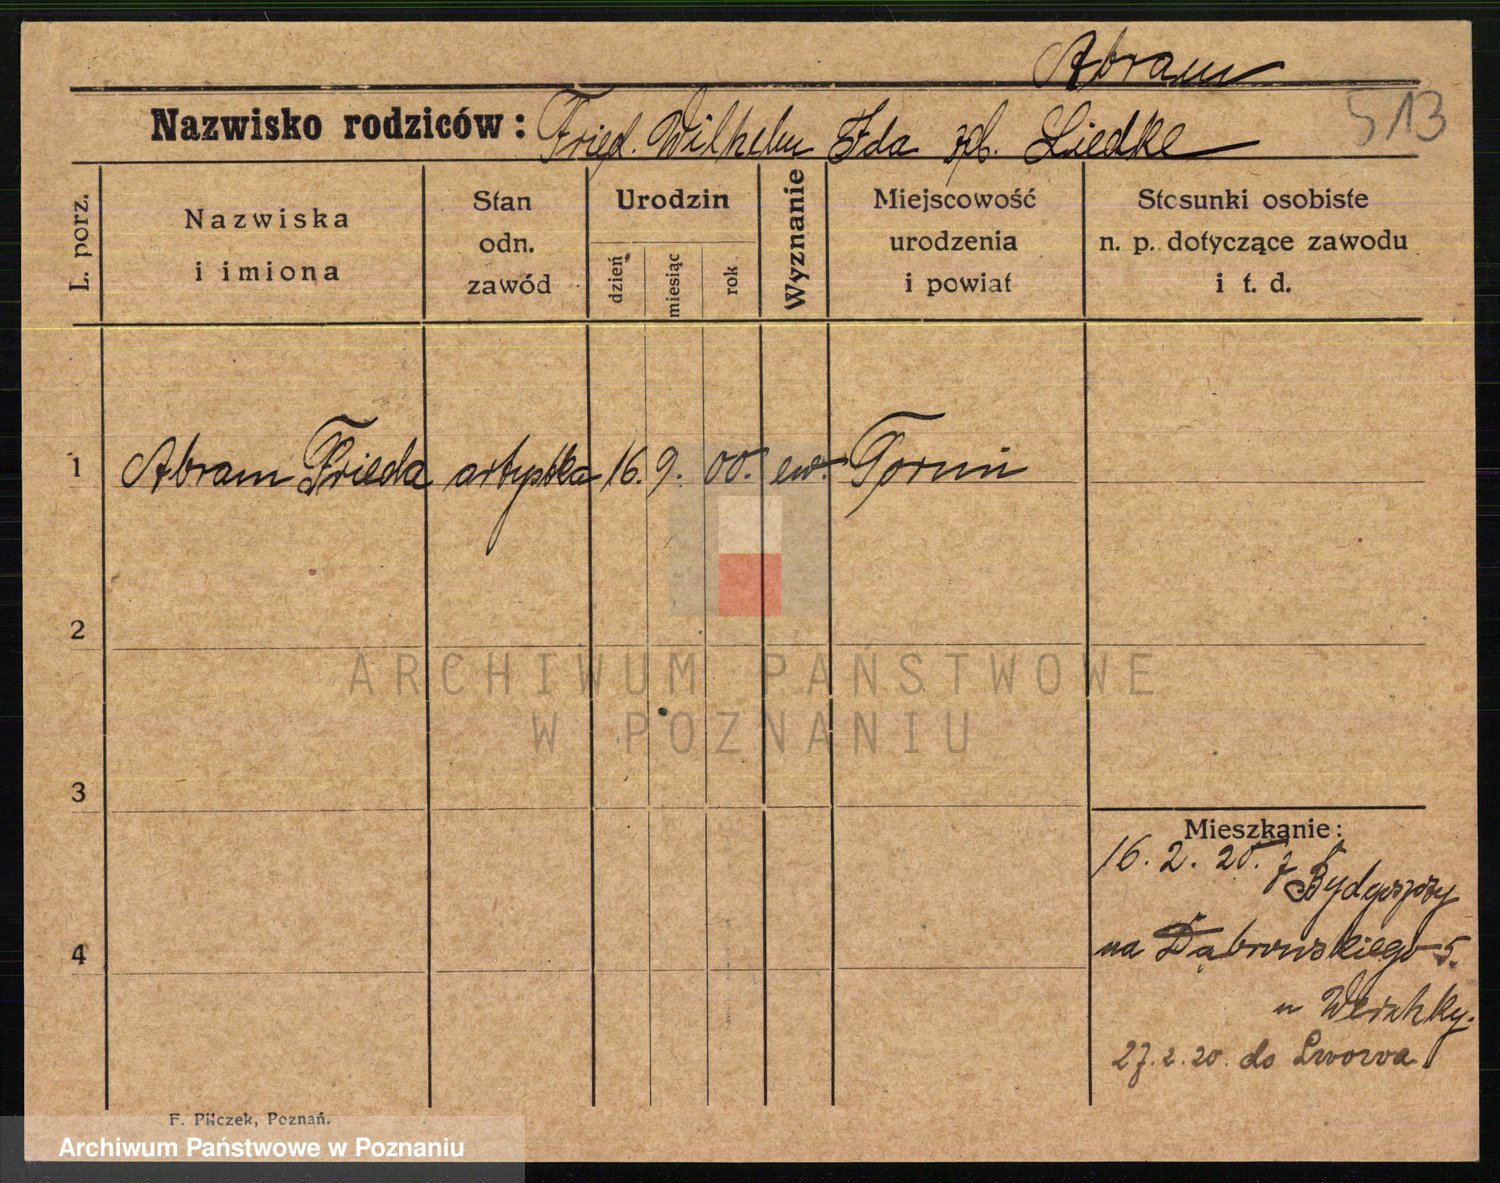 Abram
513
Nazwisko rodziców: Fried. Wilhelm Ida Liedke
L. porz.
Nazwiska
i imiona
Stan
odn.
zawód
Urodzin
dzień
miesiąc
rok
Wyznanie
Miejscowość
urodzenia
i powiat
Stosunki osobiste
n. p. dotyczące zawodu
i t. d.
1 Abram Frieda artystka 16. 9. 00. ew. Toruń
2
ARCHIWUM PAŃSTWOWE
W POZNANIU
3
Mieszkanie:
16. 2. 20. z Bydgoszczy
4
na Dąbrowskiego 5.
u
27. 2. 20. do Lwowa
F. Pilczek, Poznań.
Archiwum Państwowe w Poznaniu